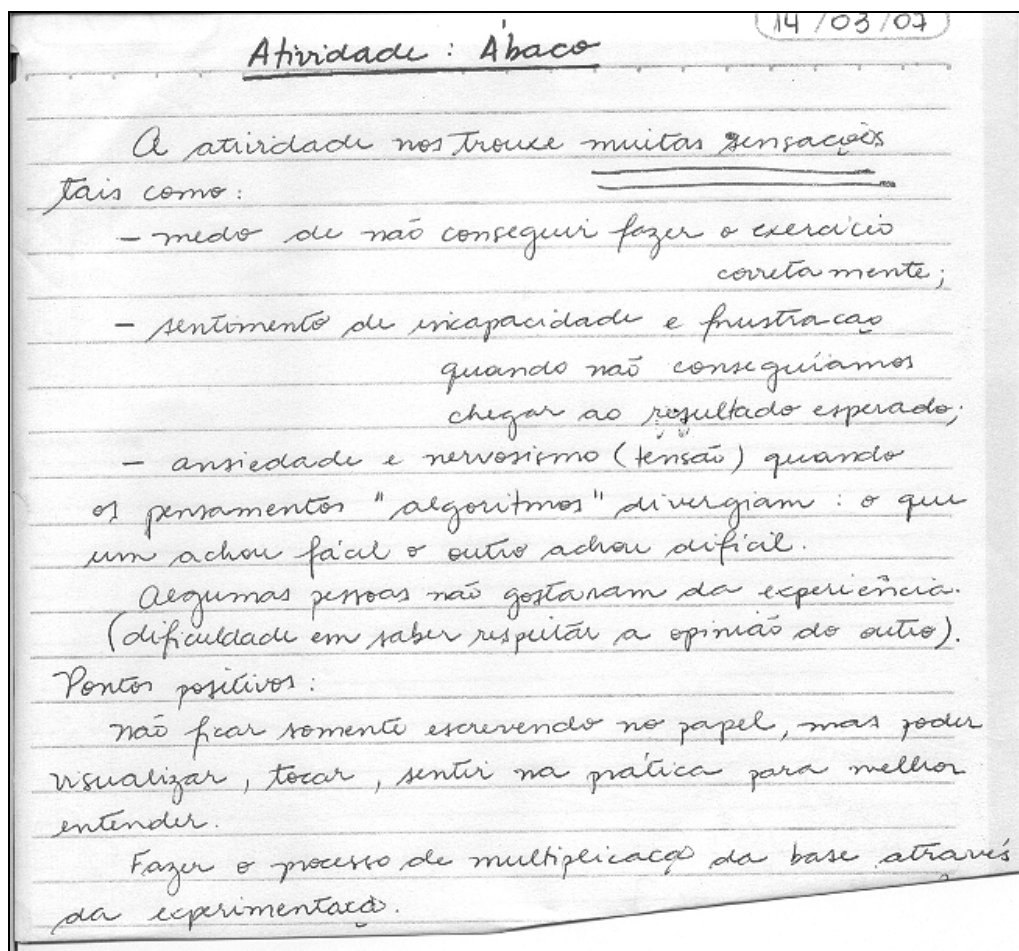 14/03/07
Atividade : Ábaco
A atividade nos trouxe muitas sensações
tais como:
- medo de não conseguir fazer o exercício
corretamente;
- sentimento de incapacidade e frustracao
quando não conseguíamos
chegar ao resultado esperado;
- ansiedade e nervosismo (tensão) quando
os pensamentos "algoritmos" divergiam : o que
um achou fácil o outro achou difícil.
Algumas pessoas não gostaram da experiência.
(dificuldade em saber respeitar a opinião do outro).
Pontos positivos:
não ficar somente escrevendo no papel, mas poder
visualizar, tocar, sentir na prática para melhor
entender.
Fazer o processo de multiplicação da base através
da experimentação.